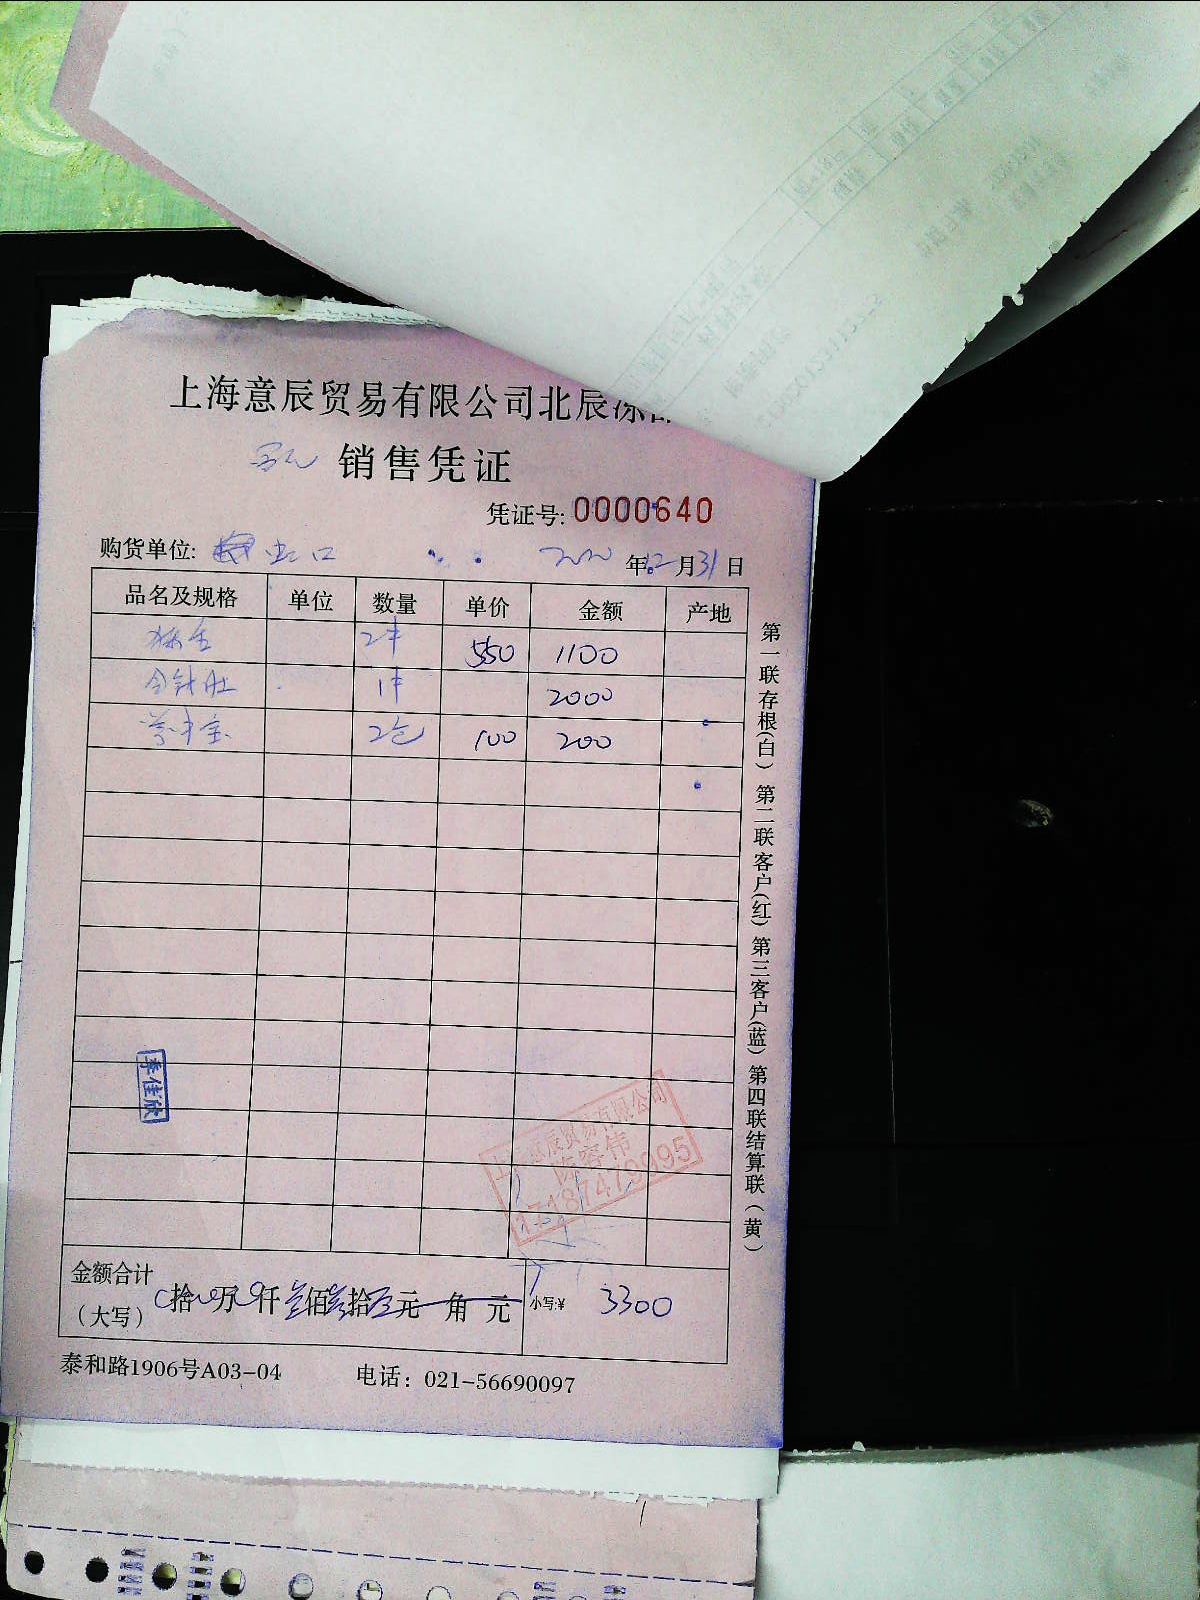 上海意辰贸易有限公司北辰冻
销售凭证
凭证号: 0000640
购货单位: 虹口 2020年12月31日
品名及规格 单位 数量 单价 金额 产地
2件 550 1100
金针肚 1件 2000
2包 100 200
李佳欣
上海意辰贸易有限公司
陈容伟
17187479095
金额合计
(大写) 拾 万 仟 佰 拾 元 角 元 小写:¥ 3300
泰和路1906号A03-04 电话: 021-56690097
第一联存根(白) 第二联客户(红) 第三客户(蓝) 第四联结算联(黄)